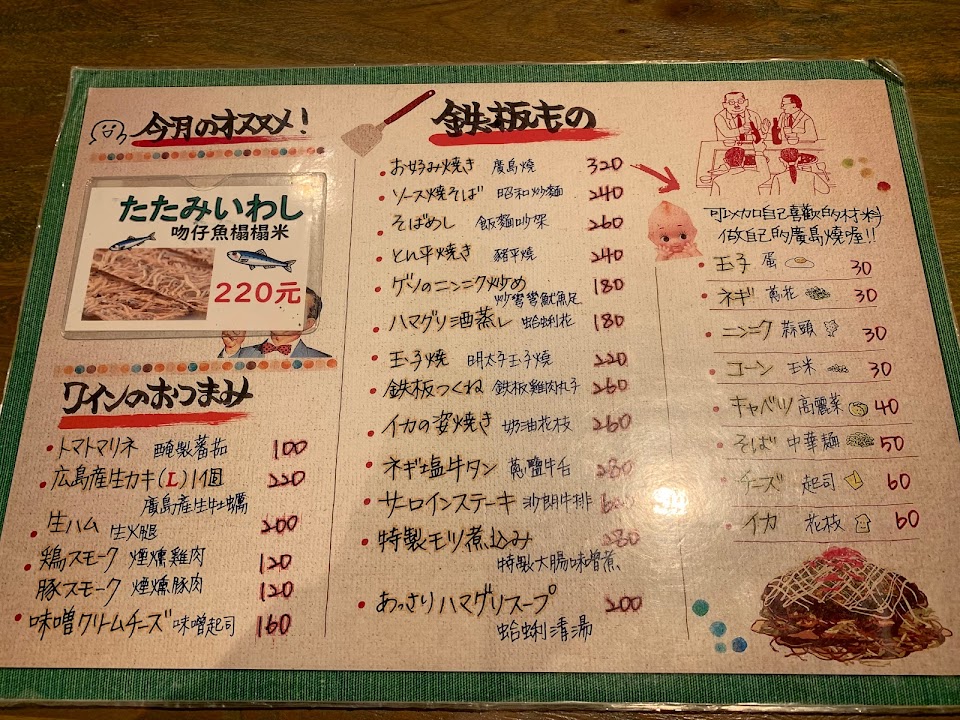 今月のオススメ!
たたみいわし
吻仔魚榻榻米
220元
ワインのおつまみ
トマトマリネ 醃製蕃茄 100
広島産生カキ(L)1個 220
廣島産生牡蠣
生ハム 生火腿 200
鶏スモーク 煙燻雞肉 120
豚スモーク 煙燻豚肉 120
味噌クリームチーズ 味噌起司 160
鉄板もの
お好み焼き 廣島燒 320
ソース焼そば 昭和炒麵 240
そばめし 飯麵吵架 260
とん平焼き 豬平燒 240
ゲソのニンニク炒め 180
炒彎彎魷魚足
ハマグリ酒蒸し 蛤蜊花 180
玉子焼 明太子玉子燒 220
鉄板つくね 鉄板雞肉丸子 260
イカの姿焼き 奶油花枝 260
ネギ塩牛タン 蔥鹽牛舌 280
サーロインステーキ 沙朗牛排
特製モツ煮込み 280
特製大腸味噌煮
あっさりハマグリスープ 200
蛤蜊清湯
可以加自己喜歡的材料
做自己的廣島燒喔!!
玉子 蛋 30
ネギ 蔥花 30
ニンニク 蒜頭 30
コーン 玉米 30
キャベツ 高麗菜 40
そば 中華麵 50
チーズ 起司 60
イカ 花枝 60